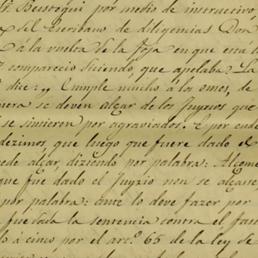 ti. Beusequi por medio de instruccivo,
y del Escribano de diligencias Don
á la vuelta de la foja en que está l
compareció diciendo, que apelaba? La
dice: Cumple mucho á los omes, de
nera se deven alçar de los Juyzios que
se sintieren por agraviados. E por ende
dezimos que luego que fuere dado el
pede alçar, diziendo por palabra: Alçome
que fue dado el Juyzio non se alçase
por palabra: ante lo deve fazer por
fue dada la sentencia contra el fau
do á cinco por el arc.º 65 de la ley de